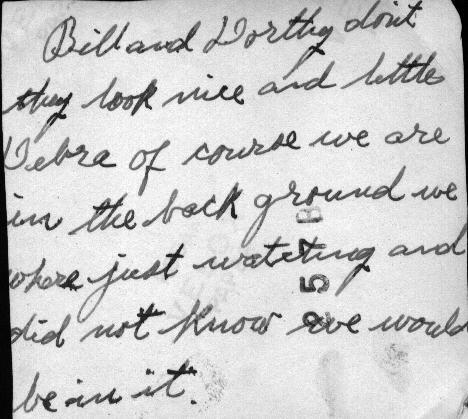 Bill and Dorthy dont
they look nice and little
Debra of course we are
in the back ground we
where just watching and
did not know we would
be in it.
257B